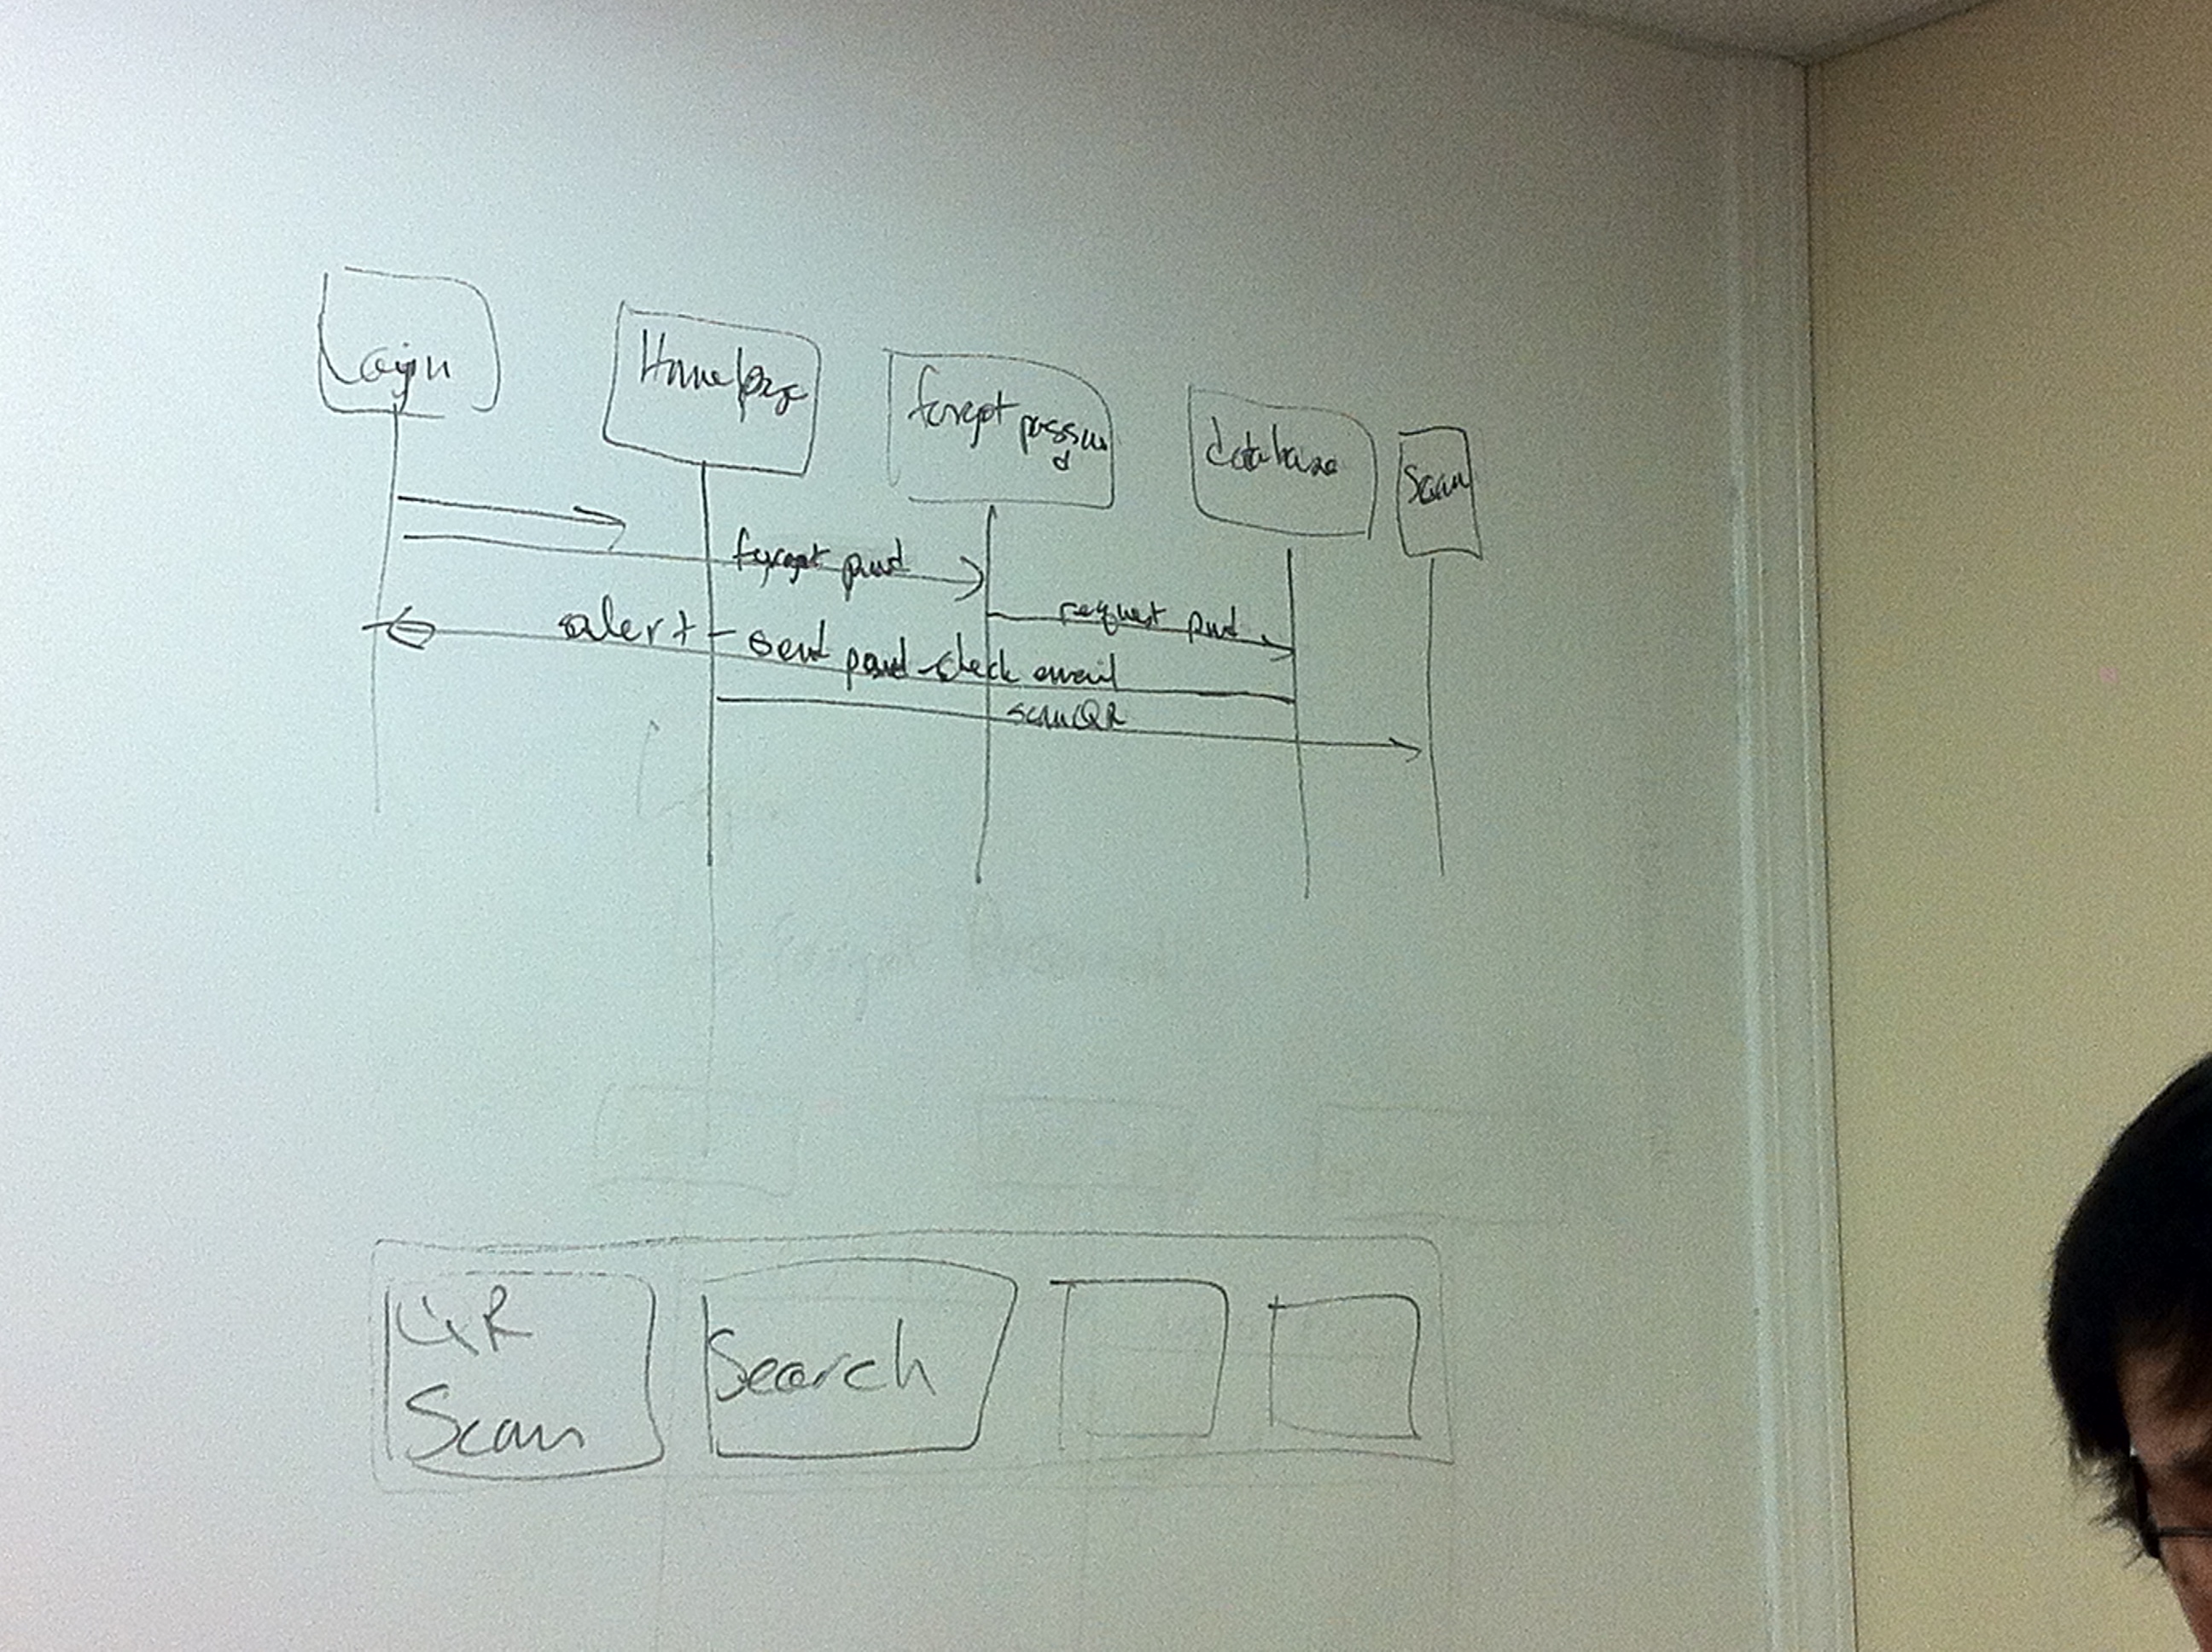 Login
Homepage
forgot passw
d
database
Scan
forgot pwd
request pwd
alert - send pwd - check email
scan QR
Forgot Password
QR
Scan
Search